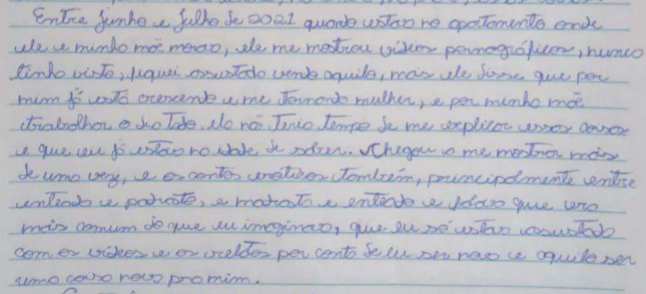 Entre junho e julho de 2021 quando estava no apartamento onde
ele e minha mãe morava, ele me mostrou vídeos pornográficos, nunca
tinha visto, fiquei assustada vendo aquilo, mas ele disse que por
mim já está crescendo e me tornando mulher, e por minha mãe
trabalhar o dia todo, ela não teria tempo de me explicar essas coisas
e que eu já estava na idade de saber. Chegou a me mostrar mais
de uma vez, e os contos eróticos também, principalmente entre
enteada e padrasto, e madrasta e enteado e falava que era
mais comum do que eu imaginava, que eu só estava assustada
com os vídeos e os relatos por conta de eu ser nova e aquilo ser
uma coisa nova pra mim.